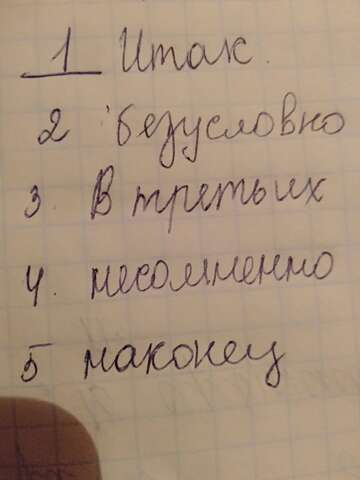 1 Итак.
2 безусловно
3 В третьих
4. несомненно
5 наконец